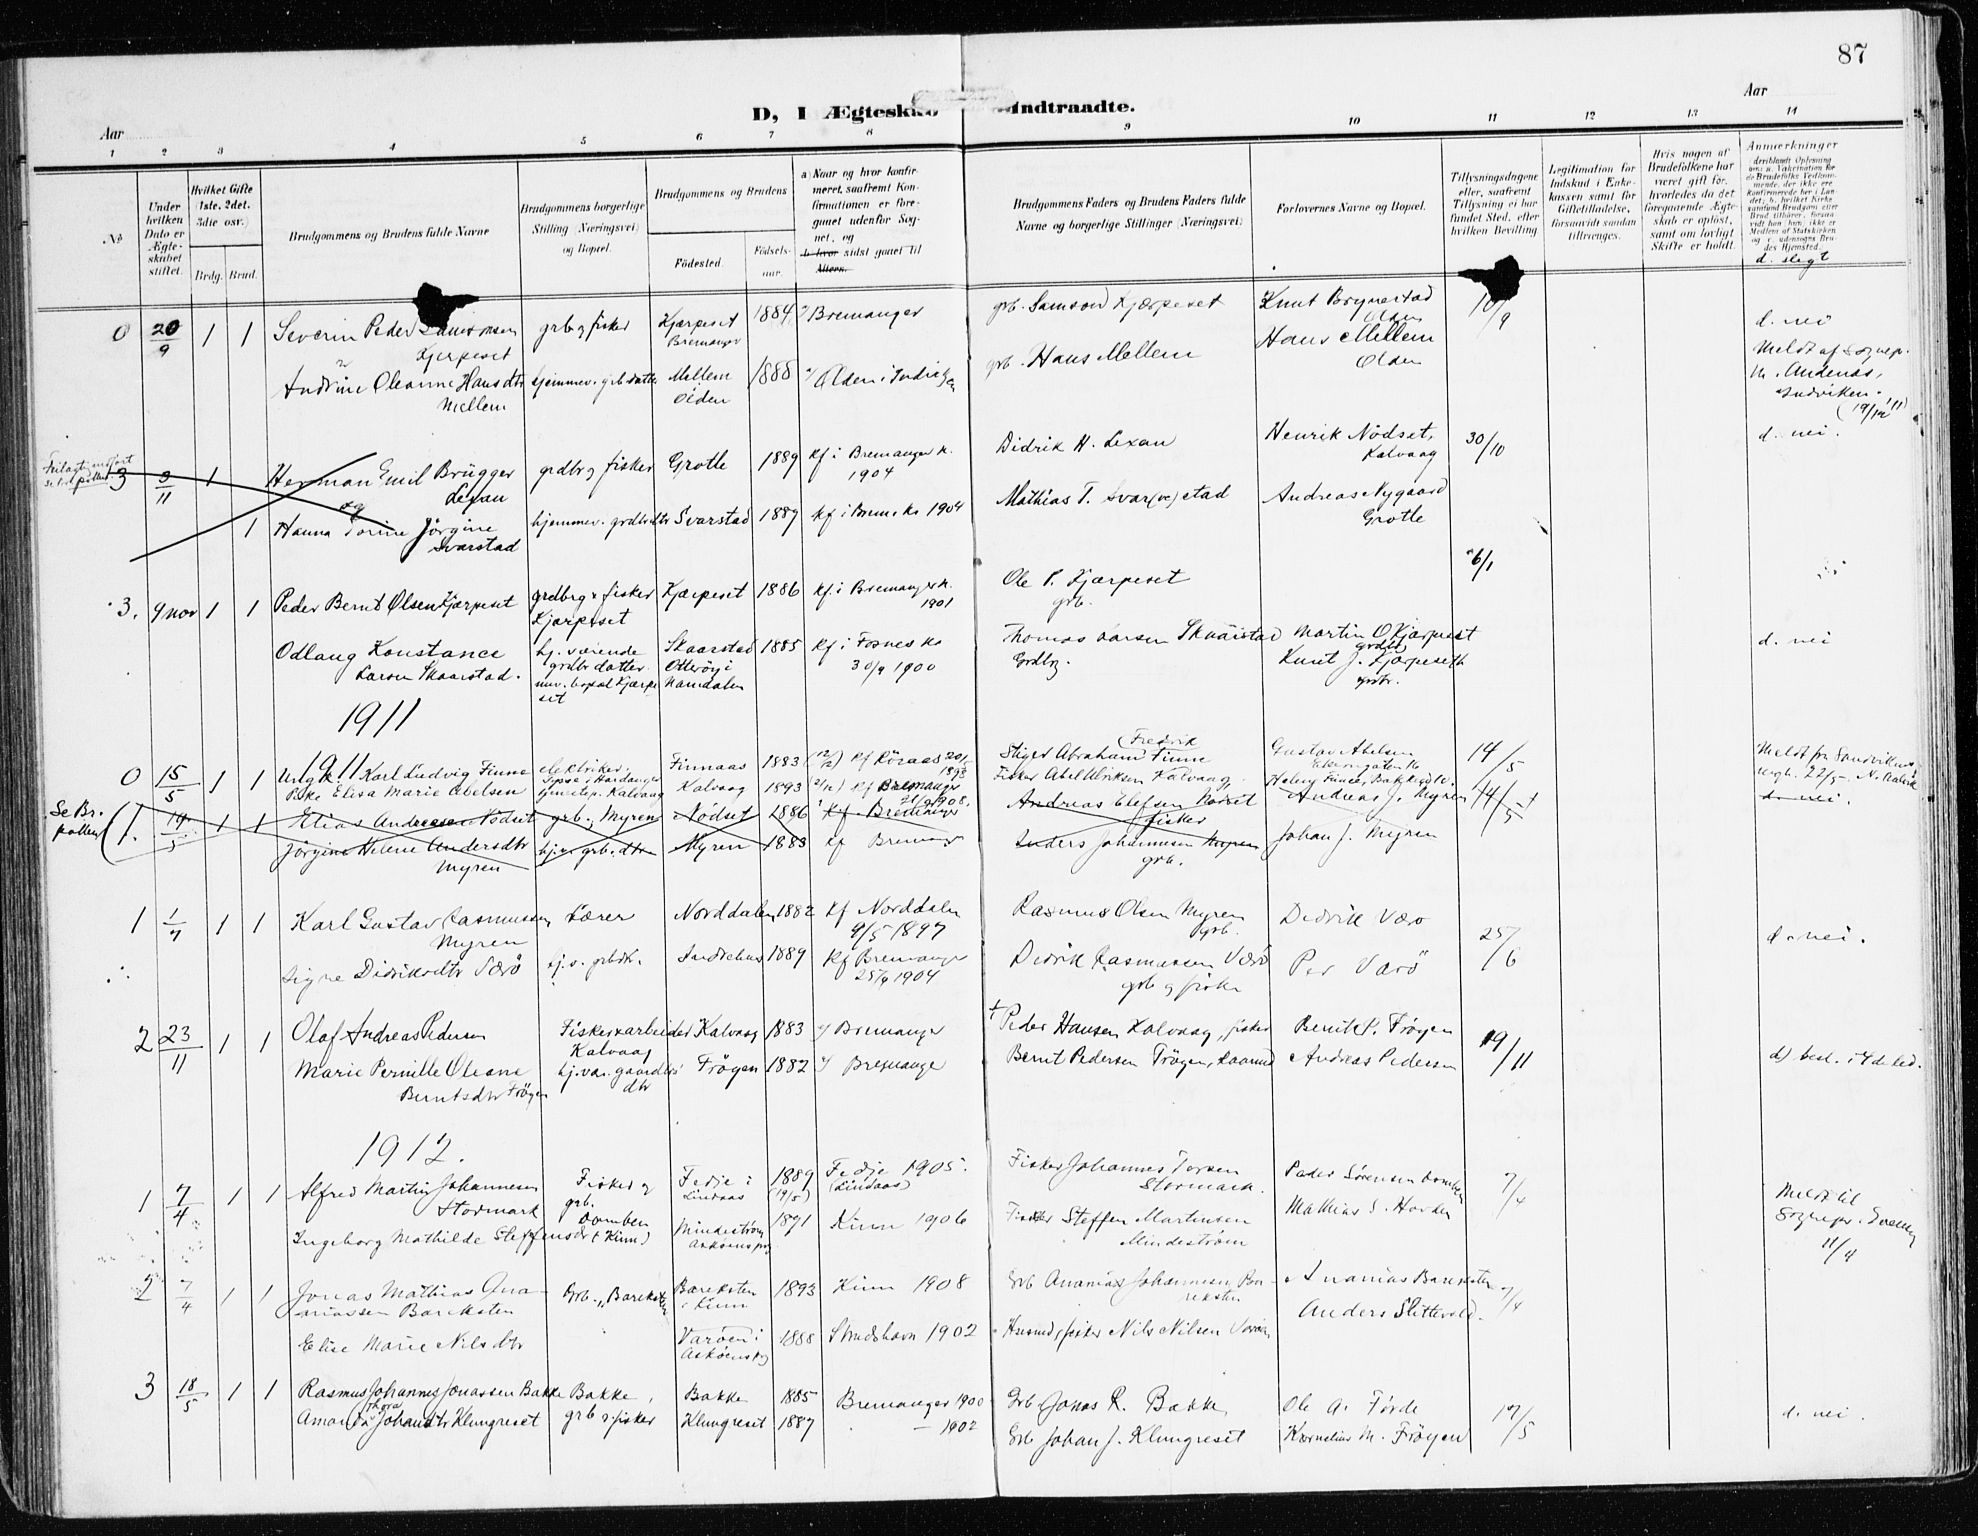 87
D, I Ægteskab Indtraadte.
Aar
Aar
1 2 3 4 5 6 7 8 9 10 11 12 13 14
No
Under hvilken Dato er Ægteskabet stiftet.
Hvilket Gifte 1ste. 2det. 3die osv.
Brdg. Brud.
Brudgommens og Brudens fulde Navne
Brudgommens borgerlige Stilling (Næringsvei) og Bopæl.
Brudgommens og Brudens
Fødested.
Fødselsaar.
a) Naar og hvor konfirmeret, saafremt Konfirmationen er foregaaet udenfor Sognet, og
b. hvor sidst gaaet til Alters.
Brudgommens Faders og Brudens Faders fulde Navne og borgerlige Stillinger (Næringsvei)
Forlovernes Navne og Bopæl.
Tillysningsdagene eller, saafremt Tillysning ei har fundet Sted, efter hvilken Bevilling
Legitimation for Indskud i Enkekassen samt for Giftetilladelse, forsaavidt saadan tiltrænges.
Hvis nogen af Brudefolkene har været gift før, hvorledes da det foregaaende Ægteskab er opløst, samt om lovligt Skifte er holdt.
Anmærkninger
d. slegt
0 20/9 1 1 Severin Peder Samsonsen grb og fisker Kjærpeset 1884 Bremanger grb. Samson Kjærpeset Knut Brynestad 10/9
Kjerpeset Bremanger Olden d. nei
Andrine Oleanne Hansdtr hjemmev. grb datter Mellem 1888 Olden i Indvigen grb. Hans Mellem Hans Mellem
Mellem Olden Olden
Meldt af Sognep. Andenæs, Indviken.
3 3/11 1 Herman Emil Brügger grdbr og fisker Grotle 1889 kf i Bremanger k. Didrik H. Lexau Henrik Nødset, 30/10 d. nei.
Lexau 1904 Kalvaag
og
1 Hanna Torine Jørgine hjemmev. grdbdtr Svarstad 1889 kf i Brem. k. 1904 Mathias T. Svar(ve)stad Andreas Nygaard
Svarstad Grotle
3. 9 nov 1 1 Peder Bernt Olsen Kjærpeset grdbrg & fisker Kjærpeset 1886 kf. i Bremanger k. Ole P. Kjærpeset 6/1
Kjærpeset 1901 grb.
Odlaug Konstance hj. værende Skaarstad 1885 kf i Fosnes k. Thomas Larsen Skaarstad Martin O Kjærpeset d. nei
Larsen Skaarstad. grdbr datter Otterøy i 30/9 1900 Grdbrg. Knut J. Kjærpeseth
nuv. bopæl Kjærpeset Namdalen grdbr.
1911
0 15/5 1 1 Ungk. Karl Ludvig Finne elektriker. Finnaas 1883 kf Röraas Stiger Abraham Fredrik Finne Gustav Abelsen 14/5
Pike Elisa Marie Abelsen Kalvaag Kalvaag 1893 kf Bremanger Fisker Abel Ulriksen Kalvaag.
Se Br. pollen
1. 14/5 1 1 Elias Andreesen Nødset grb. Myren Nødset 1886 kf. Bremanger Andreas Elefsen Nødset Andreas J. Myren 14/5 d. nei.
fisker
Jørgine Helene Andersdtr hj.v. grb. dtr Myren 1883 kf Bremanger Anders Johannesen Myren Johan J. Myren
Myren grb.
1 1/7 1 1 Karl Gustav Rasmussen Lærer Norddalen 1882 kf Norddalen Rasmus Olsen Myren Didrik Værö 25/6 d. nei.
Myren 9/5 1897 grb.
Signe Didriksdtr Værö hj. v. grbdtr. Indrehus 1889 kf Bremanger Didrik Rasmussen Værö Per Værö
25/9 1904 grb og fisker
2 23/11 1 1 Olaf Andreas Pedersen Fisker & arbeider Kalvaag 1883 Bremanger † Peder Hansen Kalvaag, fisker Bernt P. Frøyen 19/11
Kalvaag
Marie Pernille Oleane hj. vær. gaardbrs dtr Frøyen 1882 Bremanger Bernt Pedersen Frøyen, Andreas Pedersen d) besl. i 4de led.
Berntsdtr Frøyen
1912.
1 7/4 1 1 Alfred Martin Johannesen Fisker og Fedje i 1889 Fedje 1905. Fisker Johannes Torsen Peder Sørensen Domben 7/4
Stormark grb. Lindaas (19/5) (Lindaas) Stormark.
Ingeborg Mathilde Steffensdtr Domben (Kinn) Mindestrøm 1891 Kinn 1906 Fisker Steffen Martinsen Mathias S. Hovden
Mindestrøm
Meldt til Sognepr. 11/4
2 7/4 1 1 Jonas Mathias Ananiassen Bareksten Grb. Bareksten Bareksten i Kinn 1893 Kinn 1908 Grb Ananias Johannesen Bareksten Ananias Bareksten 7/4
Anders Slettevold.
Elise Marie Nilsdtr Varöen i 1888 Strudshavn 1902 Husmd, fisker Nils Nilsen Varöen
Askøens pg
3 18/5 1 1 Rasmus Johannes Jonassen Bakke Bakke, Bakke 1885 Bremanger 1900 Grb Jonas R. Bakke Ole A. Førde 17/5 d. nei.
Amanda Thora Johansdtr Klungreset grb & fisker Klungreset 1887 — 1902 Grb Johan J. Klungreset Kornelius M. Frøyen